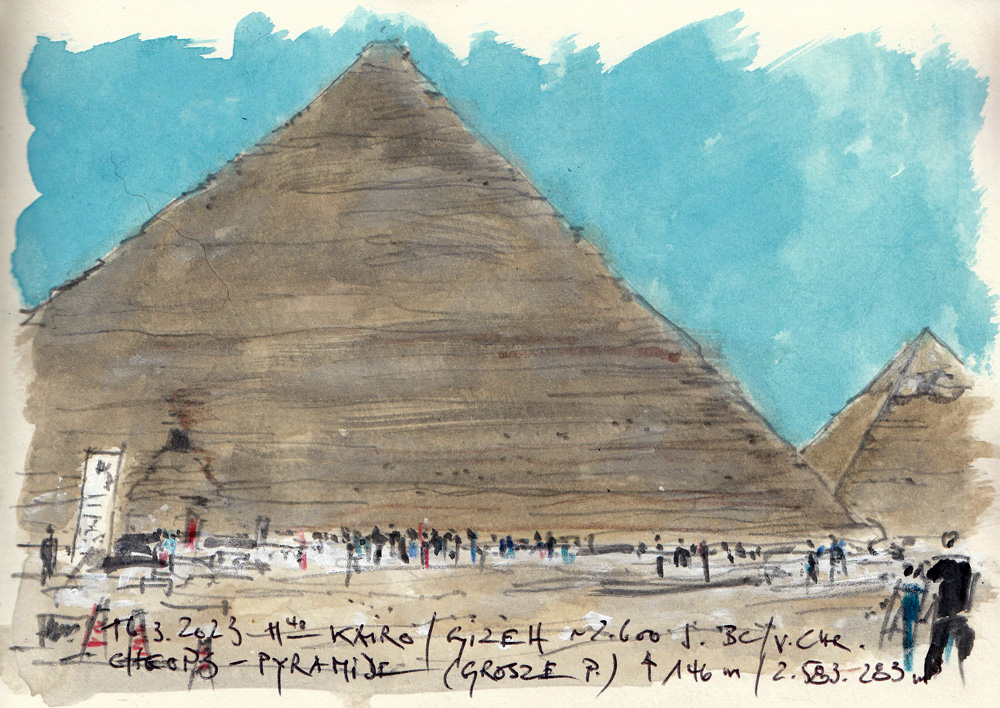 16.3.2023 11⁴⁰ KAIRO / GIZEH ~2.600 J. BC/V.CHR.
CHEOPS-PYRAMIDE (GROSZE P.) ↑ 146 m / 2.583.283 m³